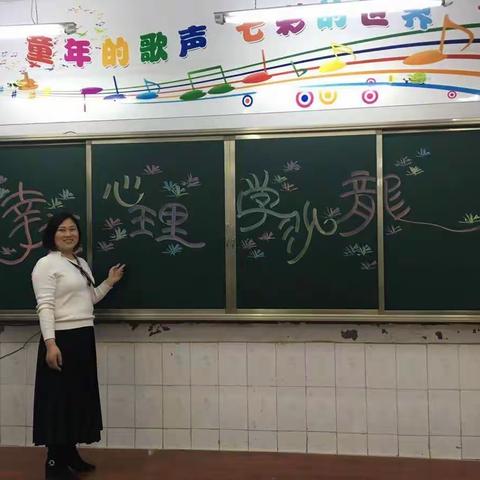 童年的歌声 七彩的世界
幸 心理 学